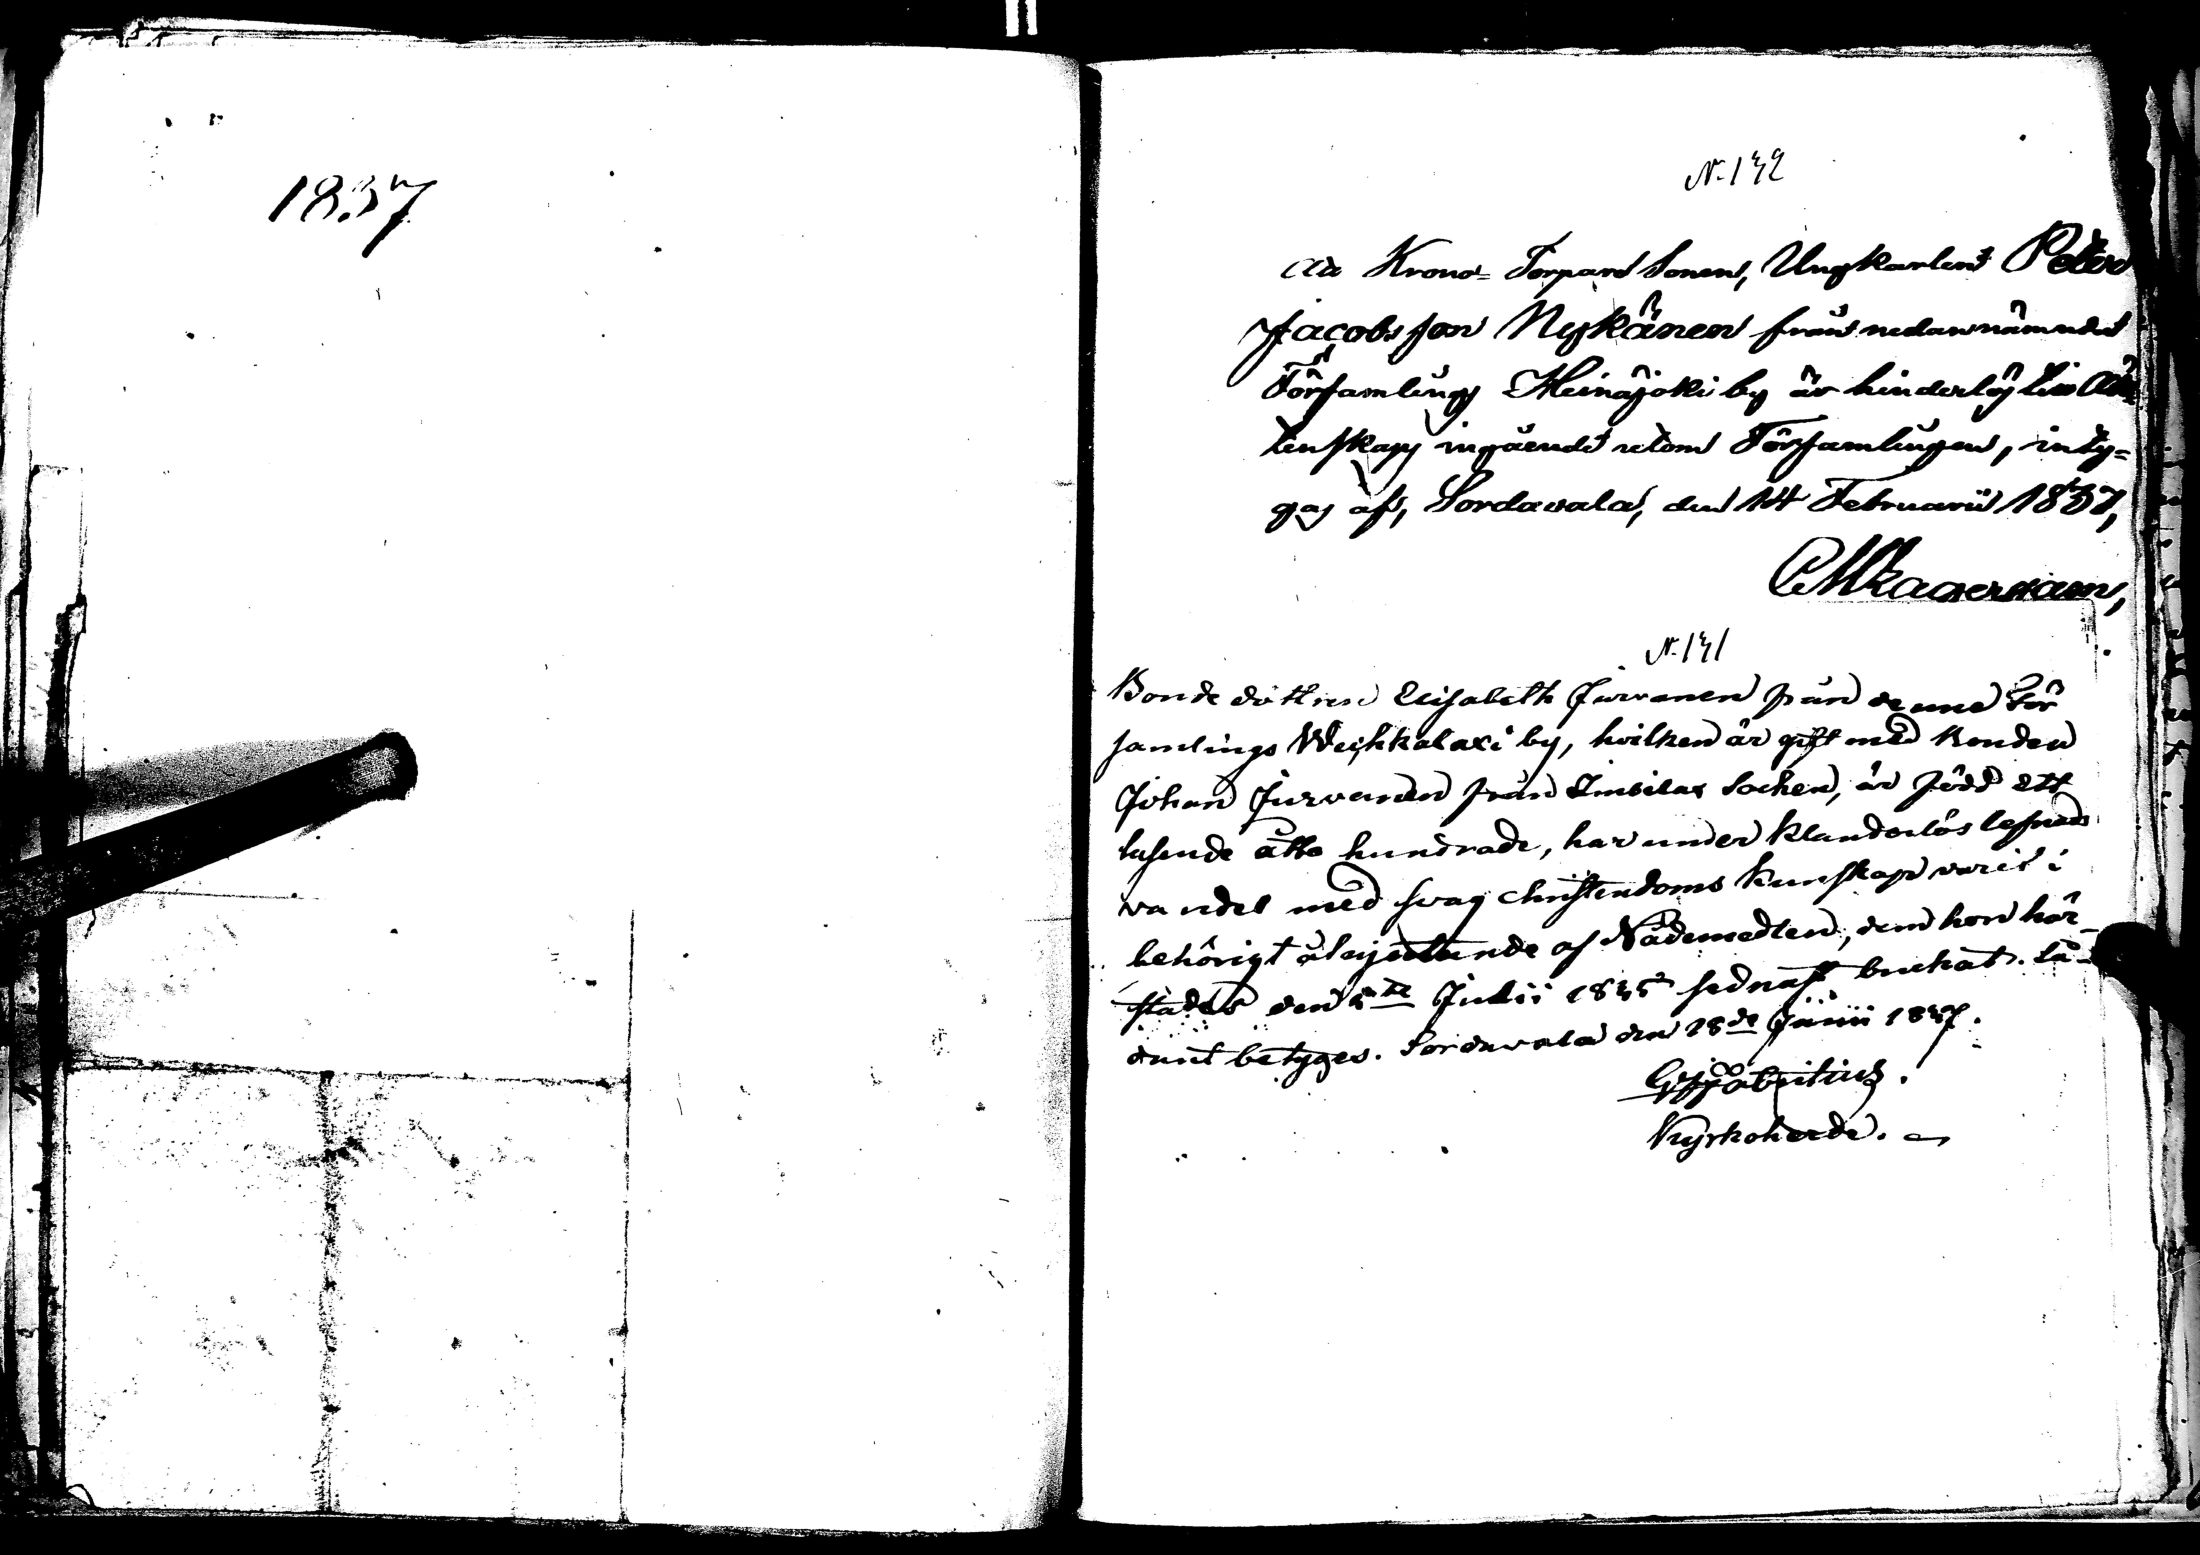 1837
N. 132
Att Krono= Torpare Sonen, Ungkarlen Peter
Jacobsson Nykänen från nedannämnde
Församlings Heinäjoki by är hinderlös till Äk-
tenskaps ingående utom Församlingen, inty=
gas af, Sordavala, den 14 Februarii 1837,
N. 131
Bonde dottren Elisabeth Jurvanen från denne För
samlings Weihkalaxi by, hvilken är gift med Bonden
Johan Jurvanen från Imbilax Socken, är född ett
tusende åtta hundrade, har under klanderlös lefnads
vandel med svag Christendoms kunskap varit i
behörigt åtnjutande af Nådemedlen, dem hon här-
städes den 5te Julii 1835 sednast brukat. Så-
dant betyges. Sordavala den 18de Junii 1837.
Kyrkoherde.